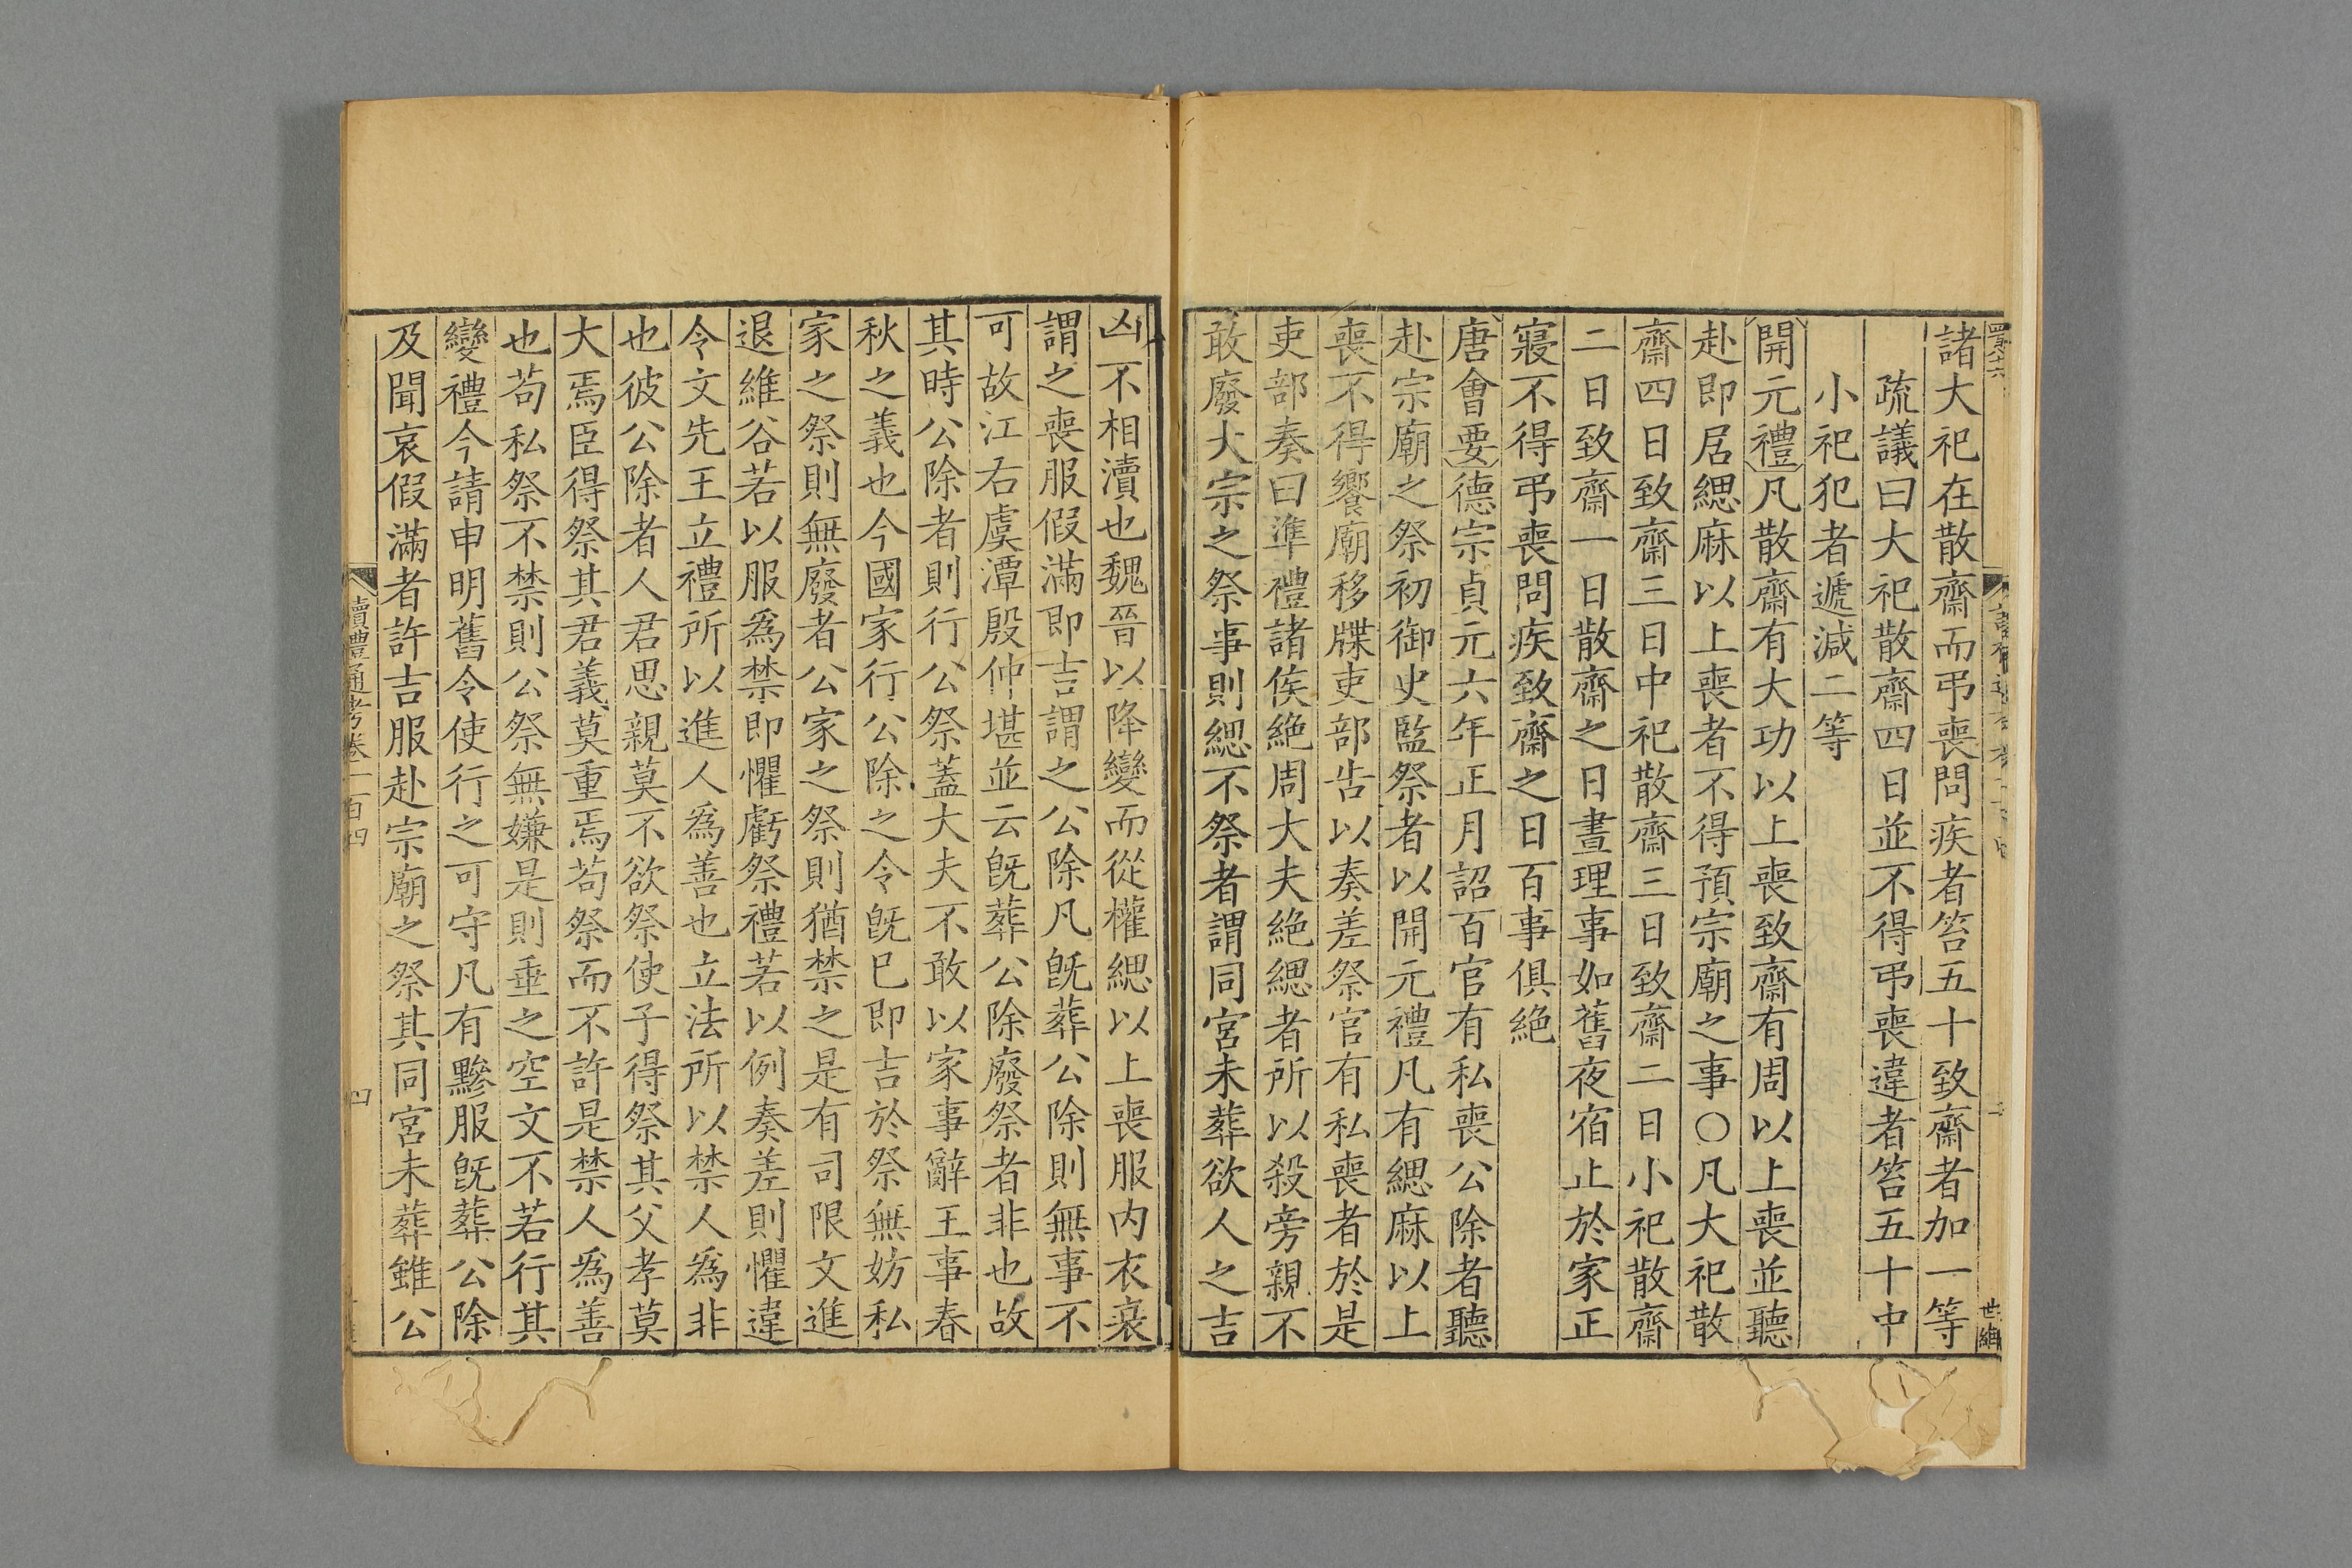 諸大祀在散齋而弔喪問疾者笞五十致齋者加一等
疏議曰大祀散齋四日並不得弔喪違者笞五十中
小祀犯者遞減二等
開元禮凡散齋有大功以上喪致齋有周以上喪並聽
赴即居緦麻以上喪者不得預宗廟之事○凡大祀散
齋四日致齋三日中祀散齋三日致齋二日小祀散齋
二日致齋一日散齋之日晝理事如舊夜宿止於家正
寢不得弔喪問疾致齋之日百事俱絶
唐會要德宗貞元六年正月詔百官有私喪公除者聽
赴宗廟之祭初御史監祭者以開元禮凡有緦麻以上
喪不得饗廟移牒吏部告以奏差祭官有私喪者於是
吏部奏曰準禮諸侯絶周大夫絶緦者所以殺旁親不
敢廢大宗之祭事則緦不祭者謂同宮未葬欲人之吉
世綸
凶不相瀆也魏晉以降變而從權緦以上喪服内衣衰
謂之喪服假滿即吉謂之公除凡旣葬公除則無事不
可故江右虞潭殷仲堪並云旣葬公除廢祭者非也故
其時公除者則行公祭蓋大夫不敢以家事辭王事春
秋之義也今國家行公除之令旣巳即吉於祭無妨私
家之祭則無廢者公家之祭則猶禁之是有司限文進
退維谷若以服爲禁即懼虧祭禮若以例奏差則懼違
令文先王立禮所以進人爲善也立法所以禁人爲非
也彼公除者人君思親莫不欲祭使子得祭其父孝莫
大焉臣得祭其君義莫重焉苟祭而不許是禁人爲善
也苟私祭不禁則公祭無嫌是則垂之空文不若行其
變禮今請申明舊令使行之可守凡有黲服旣葬公除
及聞哀假滿者許吉服赴宗廟之祭其同宮未葬雖公
讀禮通考卷一百四
四